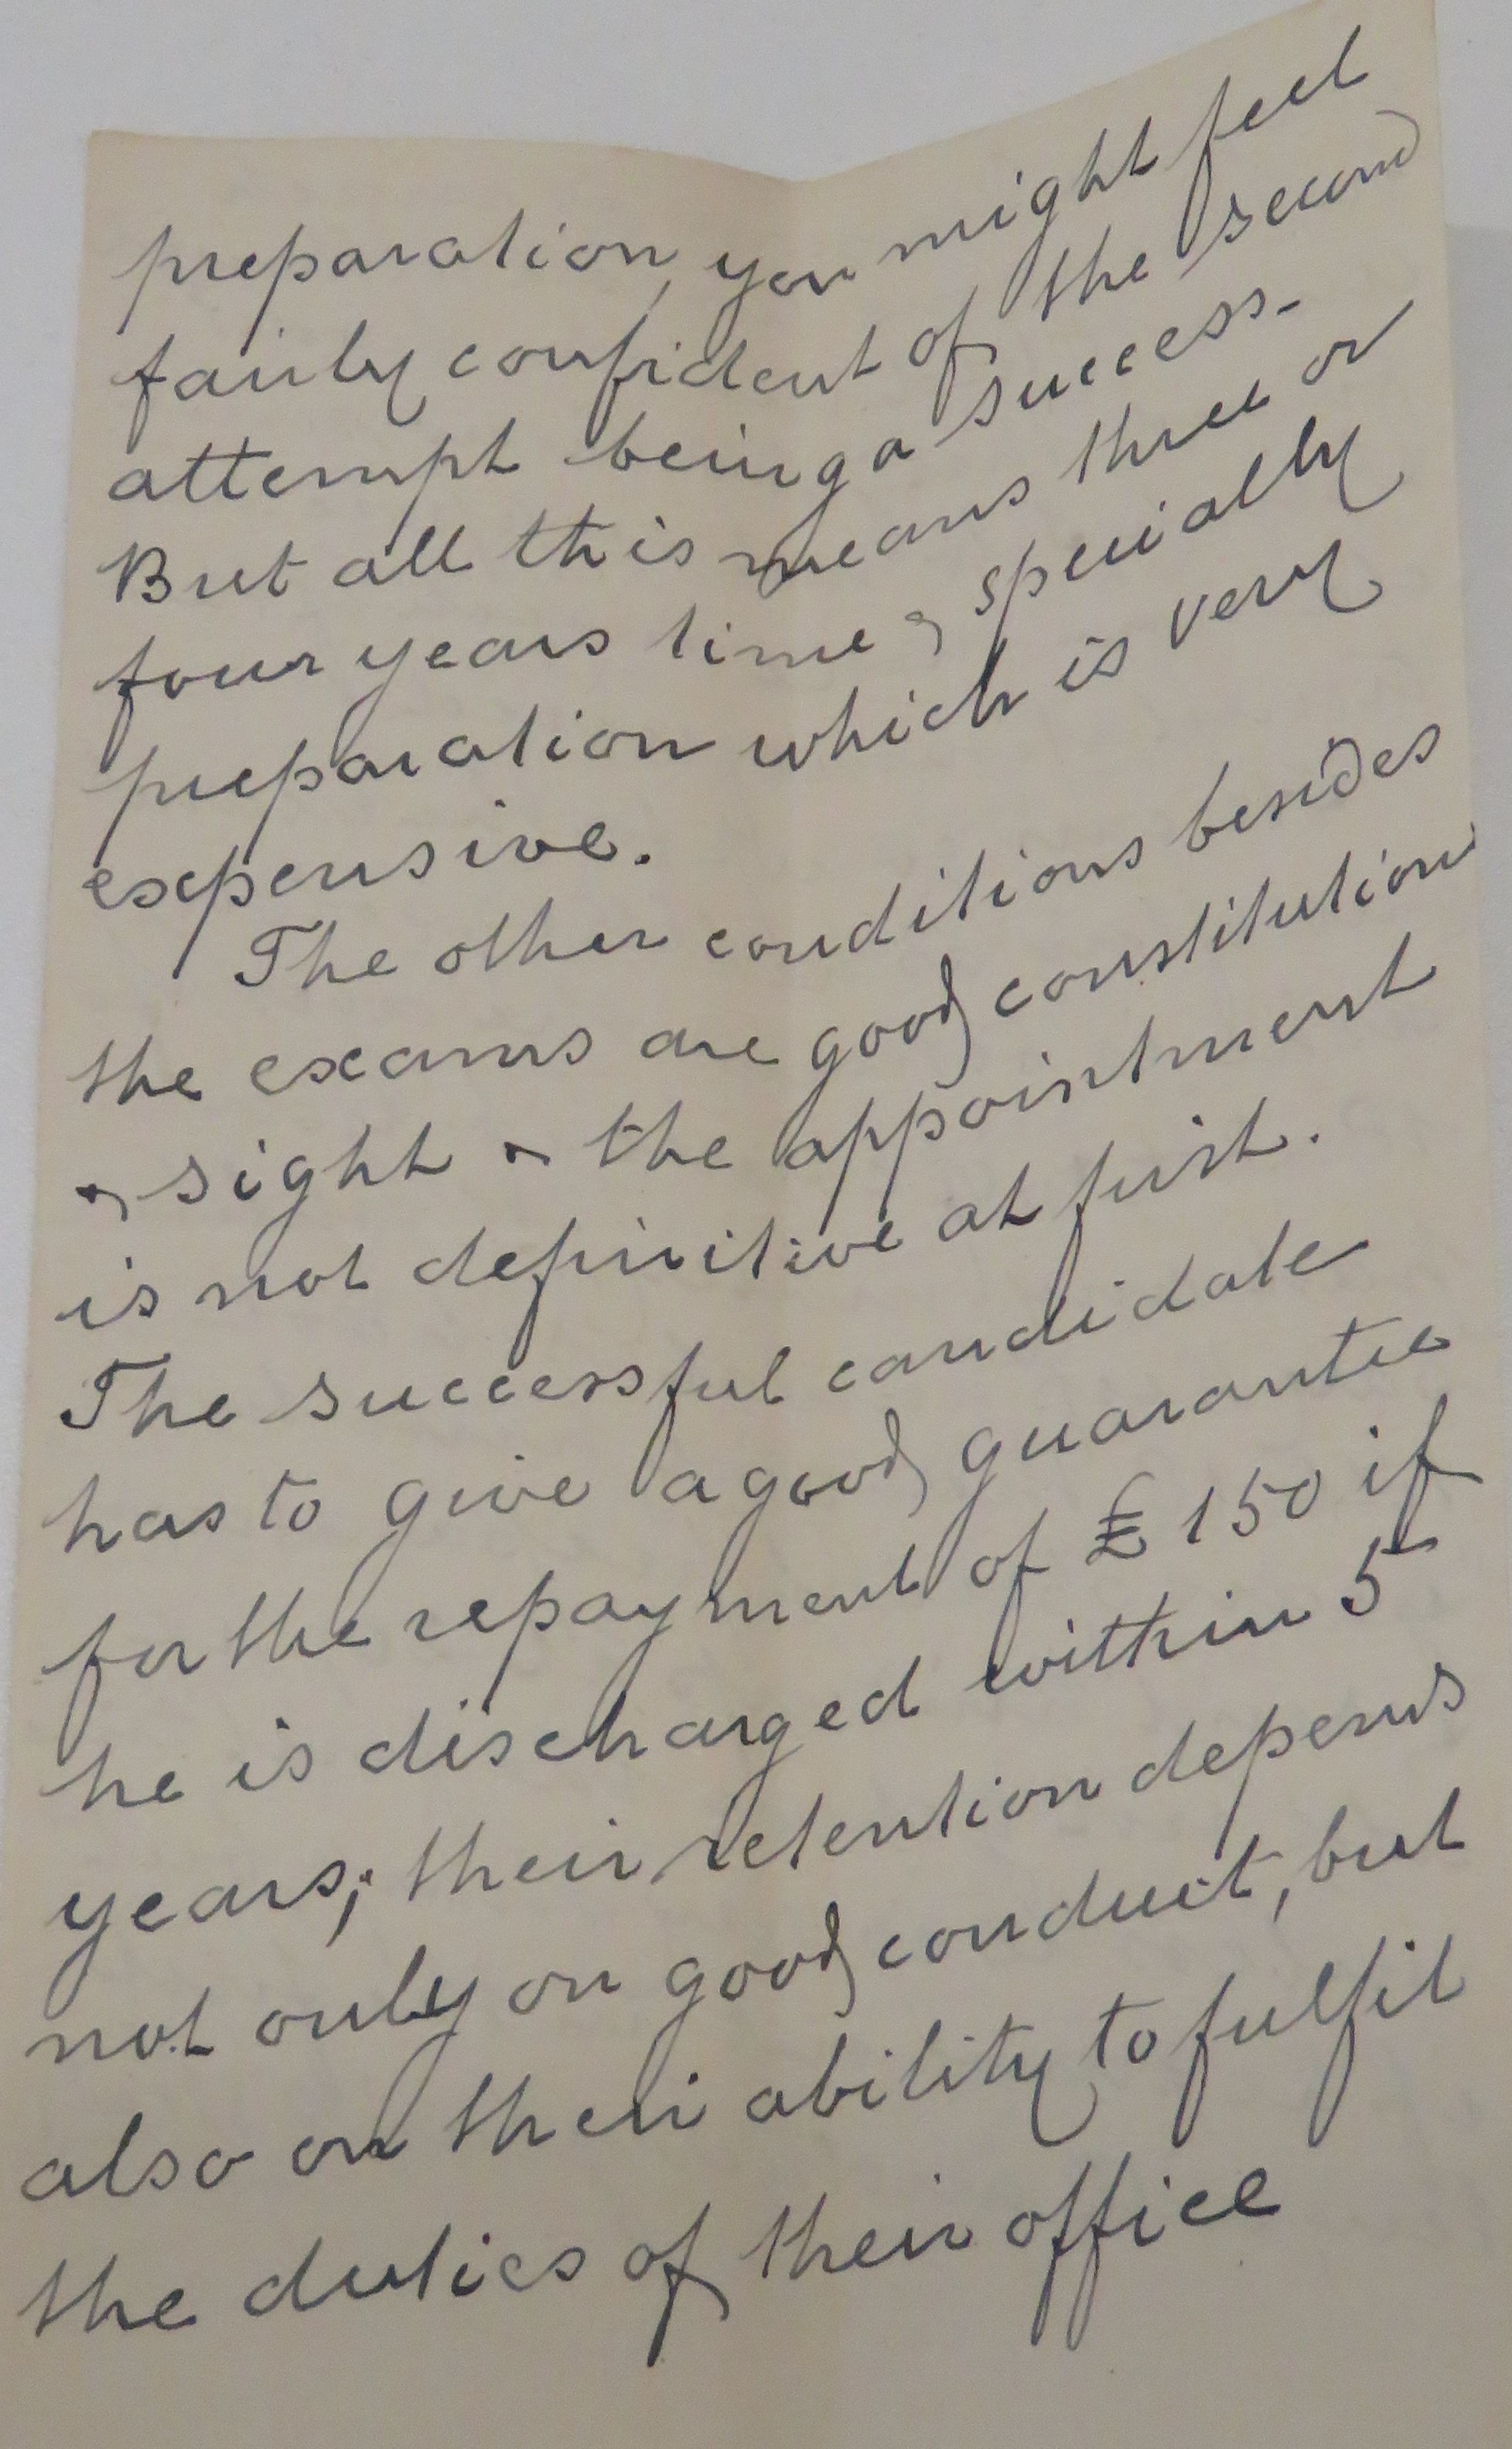 preparation, you might feel
fairly confident of the second
attempt being a success.
But all this means three or
four years time & specially
preparation which is very
expensive.
The other conditions besides
the exams are good constitution
& sight & the appointment
is not definitive at first.
The successful candidate
has to give a good guarantee
for the repayment of £150 if
he is discharged within 5
years; their retention depends
not only on good conduct, but
also on their ability to fulfil
the duties of their office